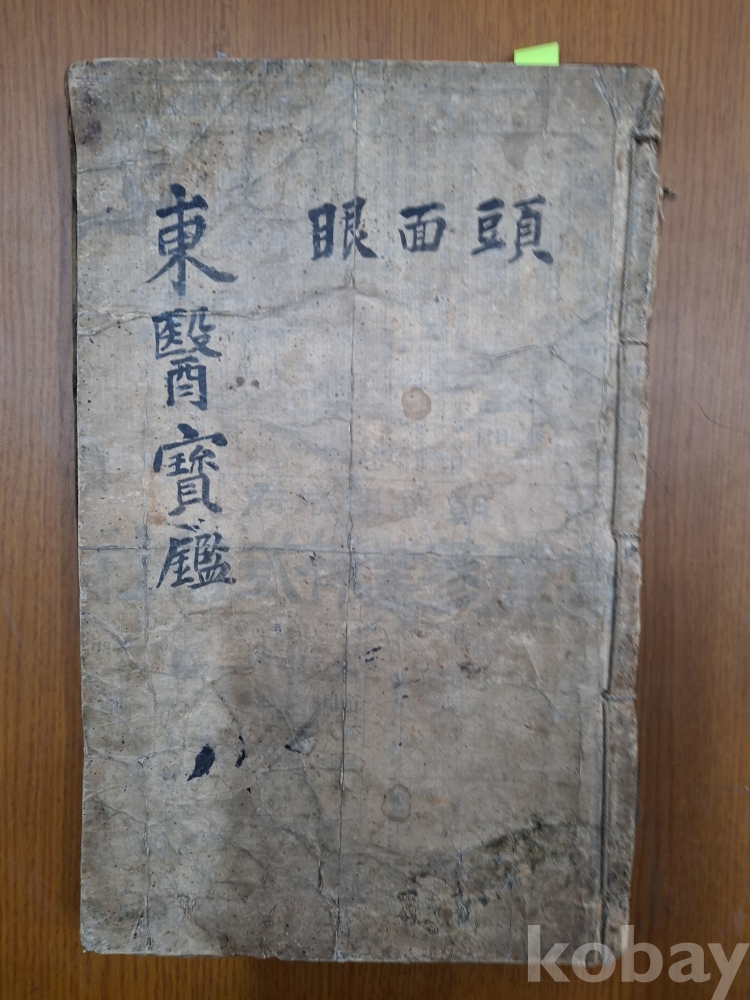 頭面眼
東醫寶鑑
kobay